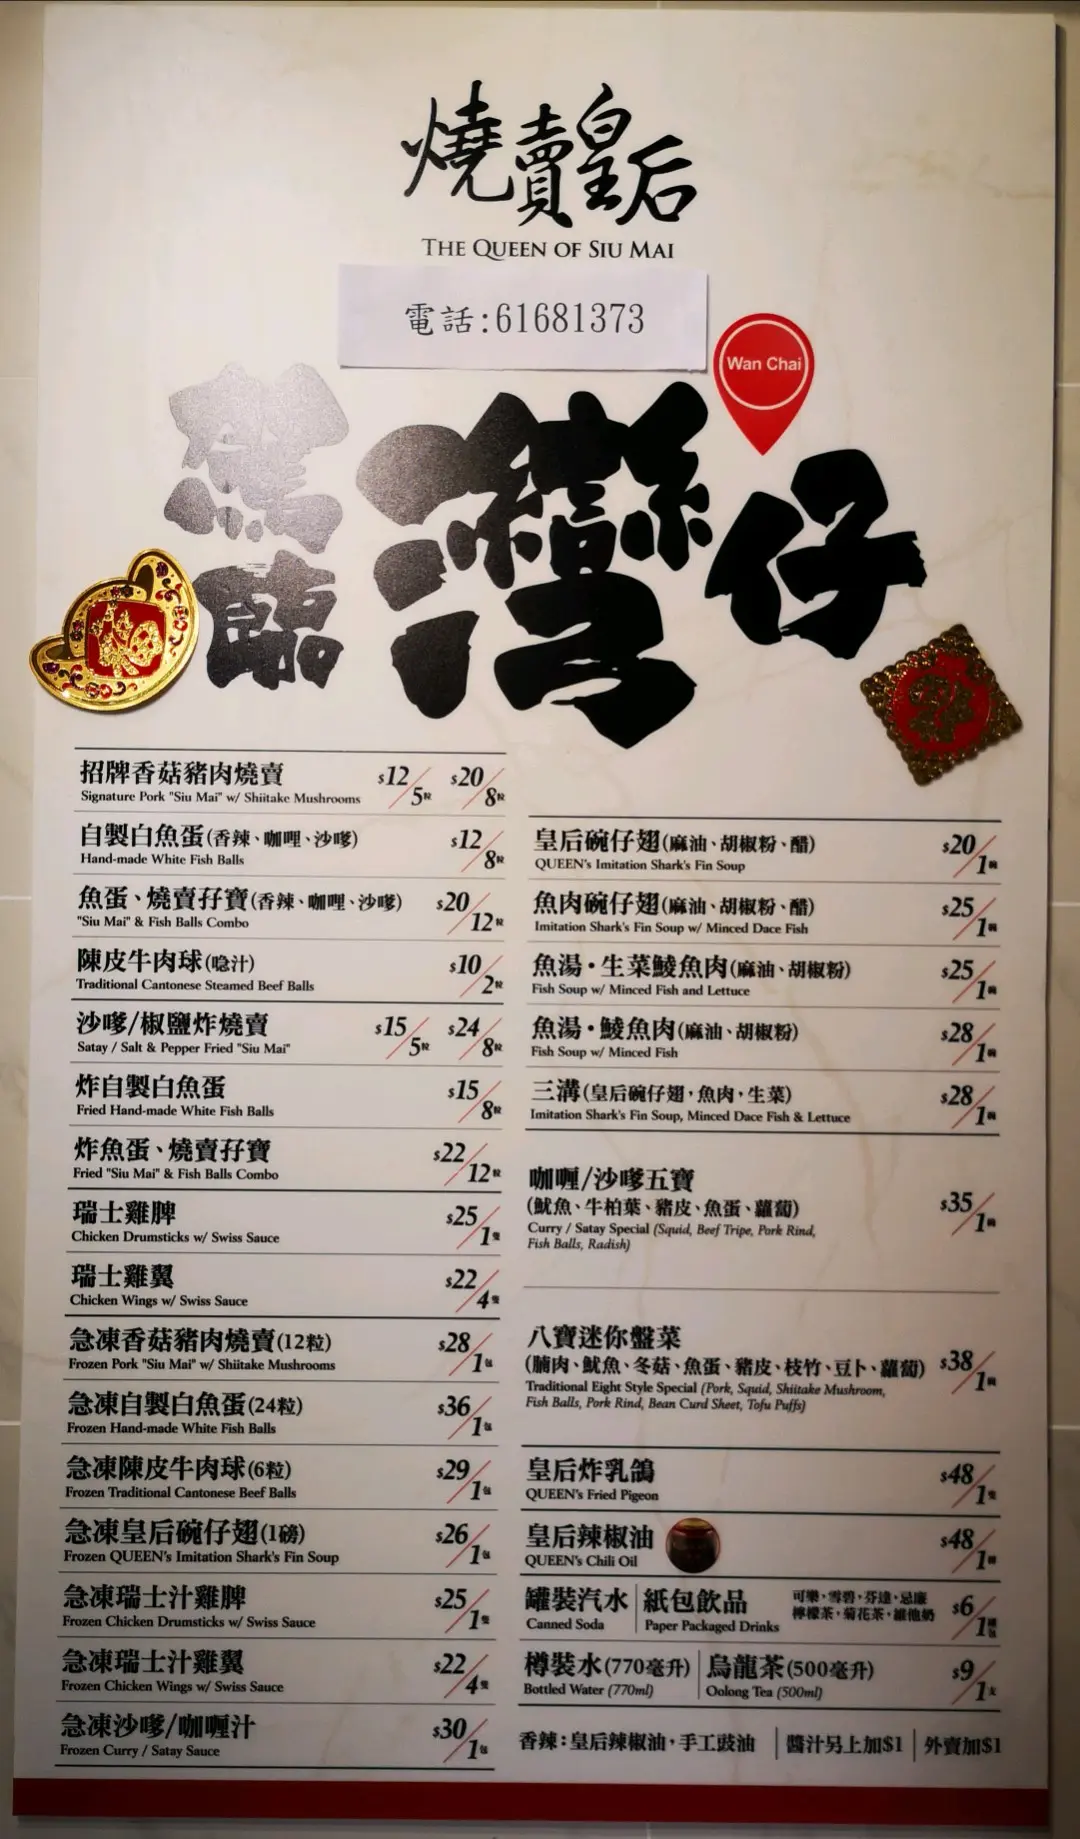 燒賣皇后
THE QUEEN OF SIU MAI
電話:61681373
Wan Chai
驚臨
灣仔
招牌香菇豬肉燒賣 $12/5粒 $20/8粒
Signature Pork "Siu Mai" w/ Shiitake Mushrooms
自製白魚蛋(香辣、咖哩、沙嗲) $12/8粒
Hand-made White Fish Balls
魚蛋、燒賣孖寶(香辣、咖哩、沙嗲) $20/12粒
"Siu Mai" & Fish Balls Combo
陳皮牛肉球(喼汁) $10/2粒
Traditional Cantonese Steamed Beef Balls
沙嗲/椒鹽炸燒賣 $15/5粒 $24/8粒
Satay / Salt & Pepper Fried "Siu Mai"
炸自製白魚蛋 $15/8粒
Fried Hand-made White Fish Balls
炸魚蛋、燒賣孖寶 $22/12粒
Fried "Siu Mai" & Fish Balls Combo
瑞士雞脾 $25/1隻
Chicken Drumsticks w/ Swiss Sauce
瑞士雞翼 $22/4隻
Chicken Wings w/ Swiss Sauce
急凍香菇豬肉燒賣(12粒) $28/1包
Frozen Pork "Siu Mai" w/ Shiitake Mushrooms
急凍自製白魚蛋(24粒) $36/1包
Frozen Hand-made White Fish Balls
急凍陳皮牛肉球(6粒) $29/1包
Frozen Traditional Cantonese Beef Balls
急凍皇后碗仔翅(1磅) $26/1包
Frozen QUEEN's Imitation Shark's Fin Soup
急凍瑞士汁雞脾 $25/1隻
Frozen Chicken Drumsticks w/ Swiss Sauce
急凍瑞士汁雞翼 $22/4隻
Frozen Chicken Wings w/ Swiss Sauce
急凍沙嗲/咖喱汁 $30/1包
Frozen Curry / Satay Sauce
皇后碗仔翅(麻油、胡椒粉、醋) $20/1碗
QUEEN's Imitation Shark's Fin Soup
魚肉碗仔翅(麻油、胡椒粉、醋) $25/1碗
Imitation Shark's Fin Soup w/ Minced Dace Fish
魚湯·生菜鯪魚肉(麻油、胡椒粉) $25/1碗
Fish Soup w/ Minced Fish and Lettuce
魚湯·鯪魚肉(麻油、胡椒粉) $28/1碗
Fish Soup w/ Minced Fish
三溝(皇后碗仔翅,魚肉,生菜) $28/1碗
Imitation Shark's Fin Soup, Minced Dace Fish & Lettuce
咖喱/沙嗲五寶
(魷魚、牛柏葉、豬皮、魚蛋、蘿蔔) $35/1碗
Curry / Satay Special (Squid, Beef Tripe, Pork Rind,
Fish Balls, Radish)
八寶迷你盤菜
(腩肉、魷魚、冬菇、魚蛋、豬皮、枝竹、豆卜、蘿蔔) $38/1碗
Traditional Eight Style Special (Pork, Squid, Shiitake Mushroom,
Fish Balls, Pork Rind, Bean Curd Sheet, Tofu Puffs)
皇后炸乳鴿 $48/1隻
QUEEN's Fried Pigeon
皇后辣椒油 $48/1
QUEEN's Chili Oil
罐裝汽水 紙包飲品 可樂,雪碧,芬達,忌廉 $6/1罐包
Canned Soda Paper Packaged Drinks 檸檬茶,菊花茶,維他奶
樽裝水(770毫升) 烏龍茶(500毫升) $9/1支
Bottled Water (770ml) Oolong Tea (500ml)
香辣:皇后辣椒油,手工豉油 醬汁另上加$1 外賣加$1